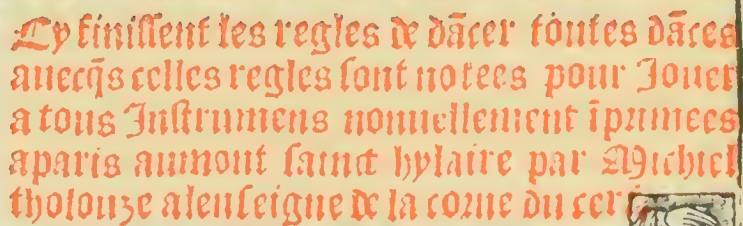 Cy finissent les regles de dācer toutes dāces
auecq̄s celles regles sont notees pour Jouer
a tous Instrumens nouuellement īprimees
aparis aumont sainct hylaire par Michiel
tholouze alenseigne de la corne du cer